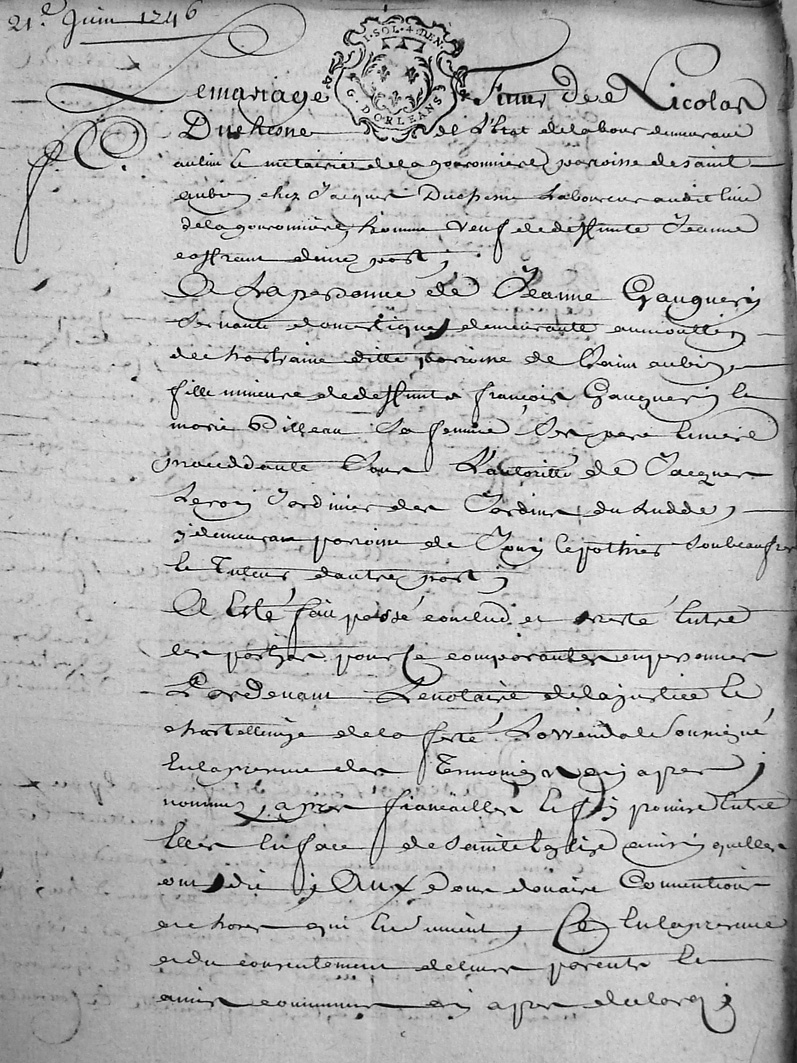 21e Juin 1746
I·SOL·4·DEN.
G. D'ORLEANS
Le mariage futur de Nicolas
Duchesne de l'Etat de labour demeurant
au lieu et metairie de la gouronniere paroisse de saint
aubin chez Jacques Duchesne Laboureur audit lieu
de la gouronniere, homme veuf de deffunte Jeanne
d'une part,
Et La personne de Jeanne Gauguery
Servante domestique, demeurante
ditte paroisse de Saint aubin
fille mineure de deffunts françois Gauguery et
marie Pilleau Sa femme Ses pere et mere
proceddante Sous L'autoritté de Jacques
Leroy Jardinier des Jardins du
y demeurant paroisse de Jouy le pothier Son beau frere
et Tuteur d'autre part,
A Esté fait passé conclud et aresté Entre
les parties pour ce comparantes en personnes
Pardevant Le notaire de la justice et
chastellenie de la ferté Lowendal Soussigné
En la presence des Temoins cy apres
nommez, apres fiancailles et foy promise Entre
Elles En face de Sainte Eglise ainsi quelles
ont dit, Aux don douaire Conventions
et choses qui En Suivent, Ce En la presence
et du consentement de leurs parents et
amis communs cy apres declarez,